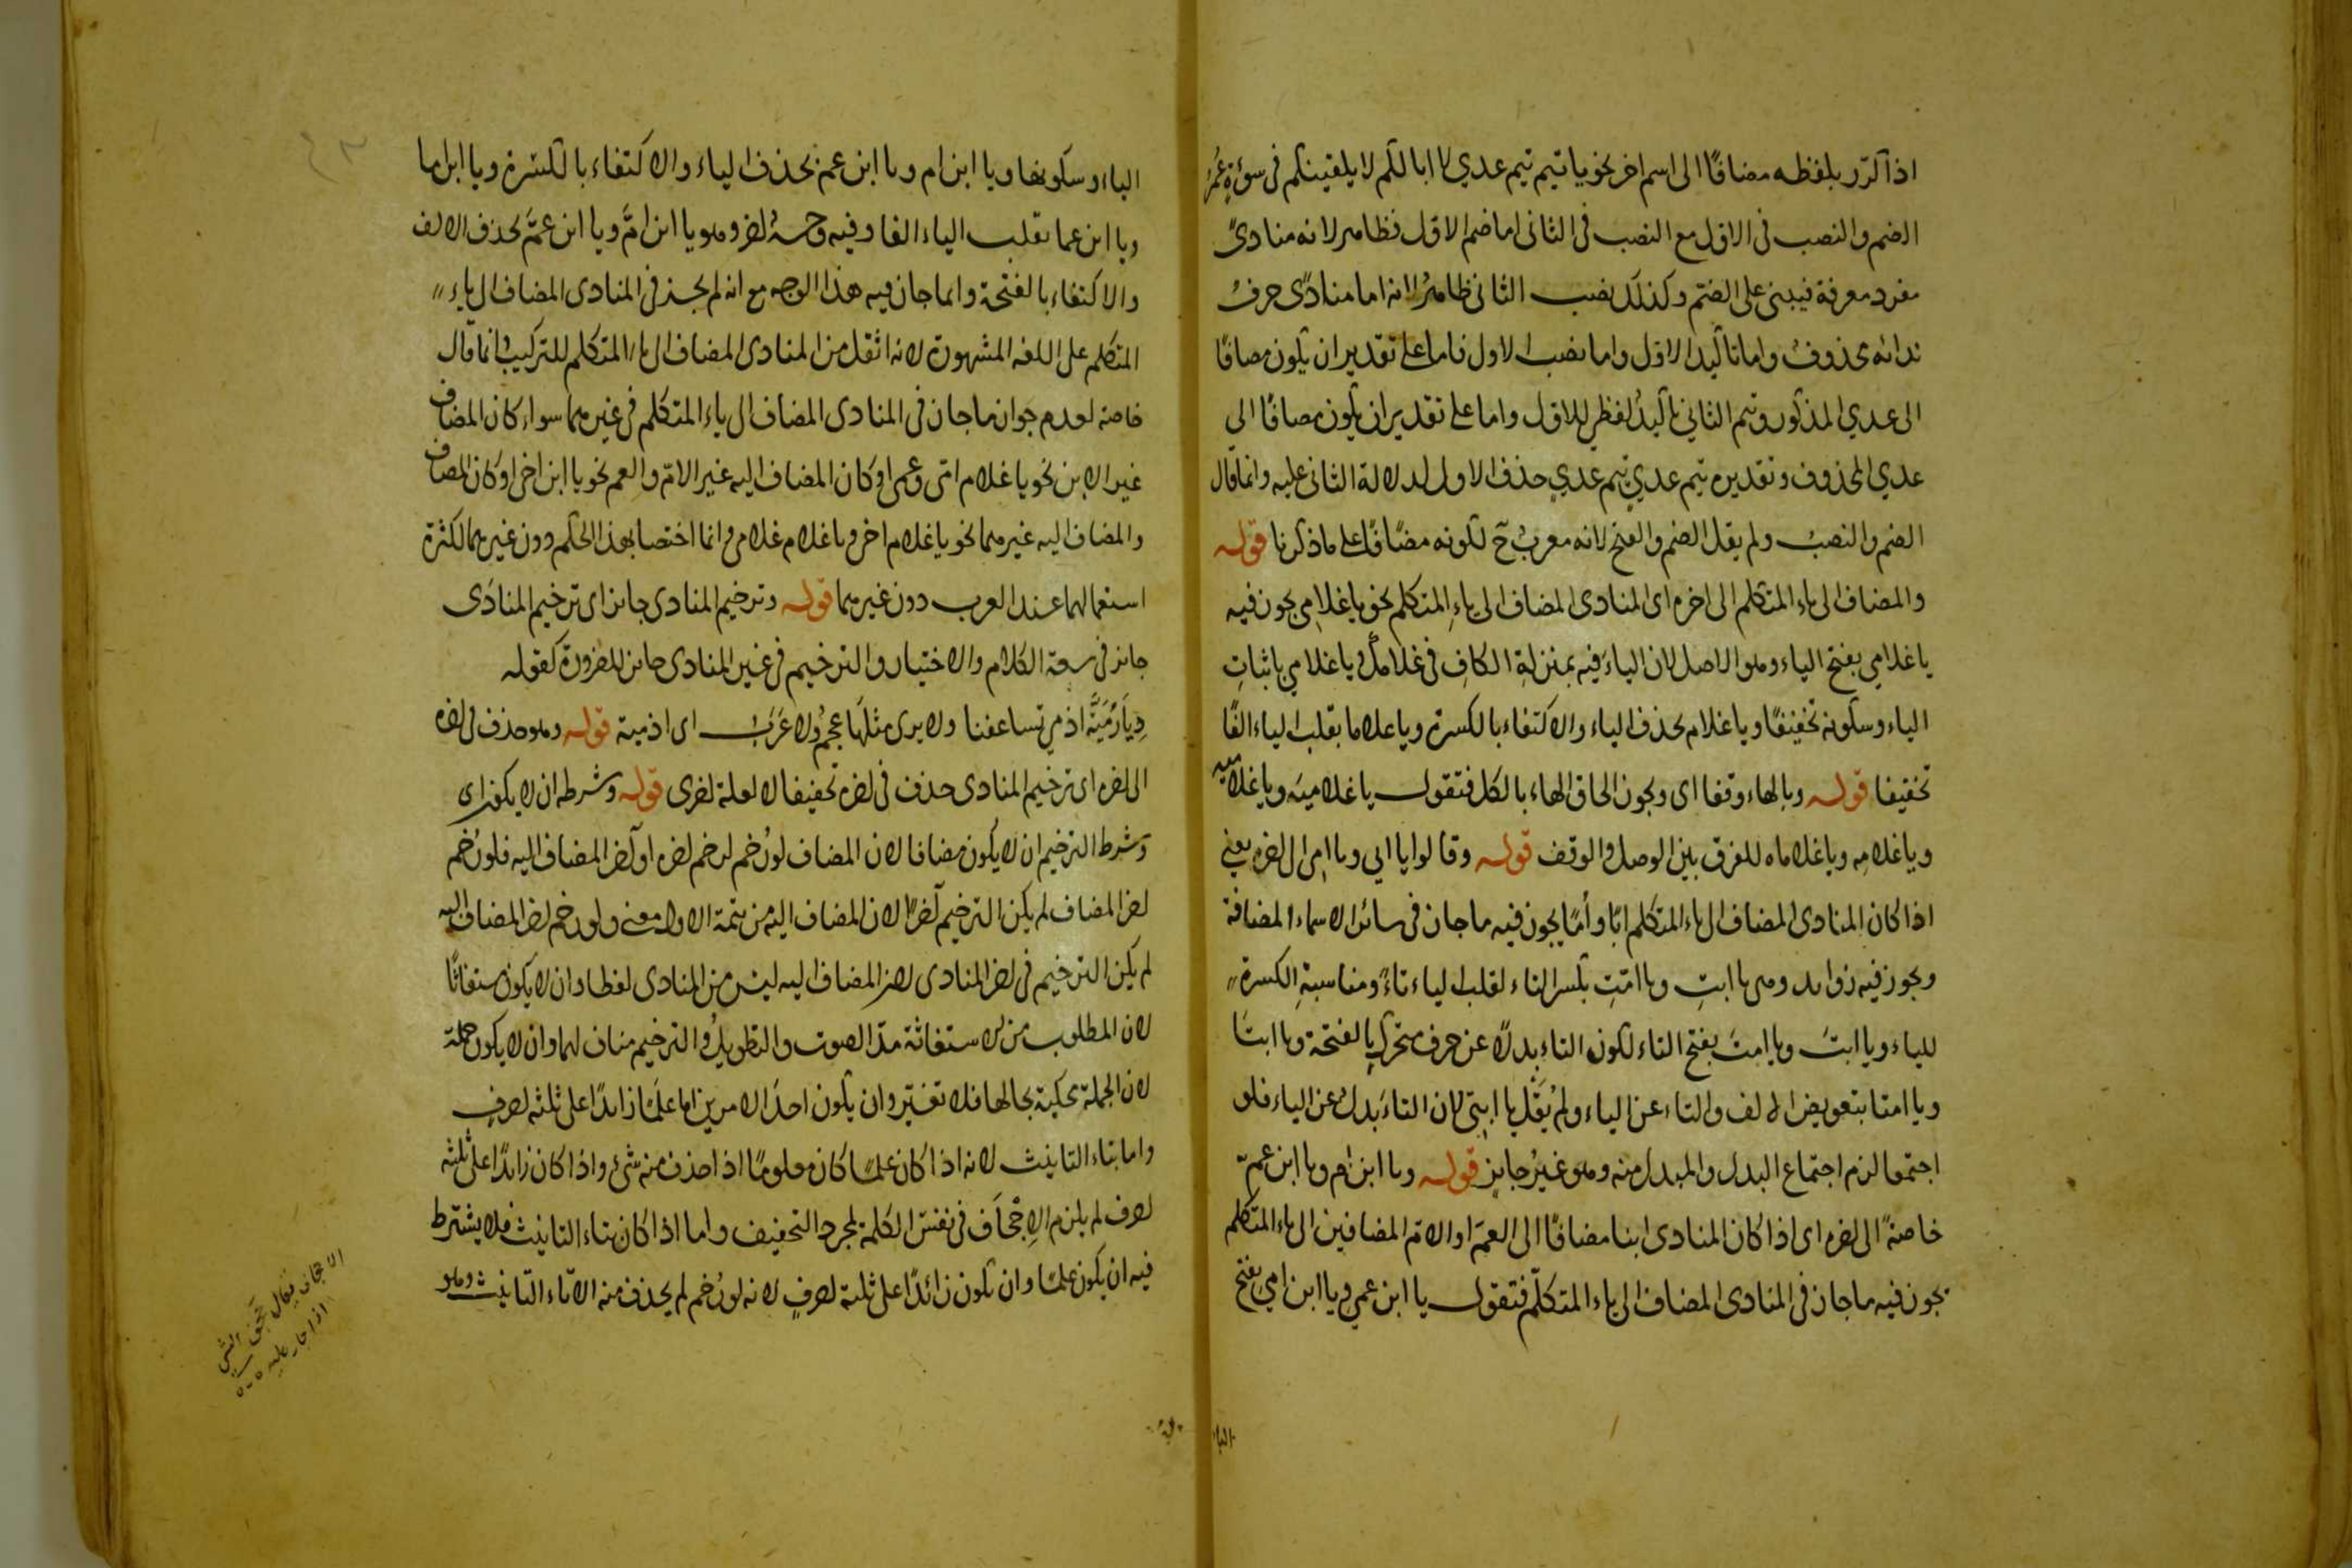 اذا كرّر بلفظه مضافًا الى اسم اخر نحو يا تيم تيم عدي لا ابا لكم لا يلقينكم في سوءةٍ عُمَرُ
الضم والنصب في الاول مع النصب في الثاني اما ضم الاول فظاهر لانه منادىً
مفرد معرفة فيبنى على الضم وكذلك نصب الثاني ظاهرٌ لانه اما منادًى حرفُ
ندائه محذوفٌ واما تاكيد الاوّل واما نصب الاول فاما على تقدير ان يكون مضافًا
الى عدي المذكور وتيم الثاني تاكيدٌ لفظي للاول واما على تقدير ان يكون مضافًا الى
عدي المحذوف وتقديره تيم عديٍ تيم عديٍ حذف الاول لدلالة الثاني عليه وانما قال
الضم والنصبُ ولم يقل الضم والفتح لانه معربٌ ح لكونه مضافًا على ما ذكرنا قوله
والمضاف الى ياء المتكلم الى اخره اى المنادى المضاف الى ياءِ المتكلم نحو يا غلامِي يجوز فيه
يا غلامي بفتح الياء وهو الاصل لان الياءَ فيه بمنزلةِ الكافِ في غلامك ويا غلامي باثباتِ
الياء وسكونه تخفيفًا ويا غلام بحذف الياء والاكتفاء بالكسرة ويا غلاما بقلب الياء الفًا
تخفيفا قوله وبالهاء وقفا اى ويجوز الحاق الهاء بالكل فتقول يا غلاميَه ويا غلاميه
ويا غلامِه ويا غلاماه للفرق بين الوصل والوقف قوله وقالوا يا ابي ويا امي الى اخره يعني
اذا كان المنادى المضاف الى ياء المتكلم ابًا وأمًا يجوز فيه ما جاز في سائر الاسماء المضافة
ويجوز فيه زوايد وهى يا ابتِ ويا امّتِ بكسر التاء لقلب الياء تاءً ومناسبةِ الكسرة
للياء ويا ابتَ ويا امتَ بفتح التاء لكون التاء بدلًا عن حرف متحرك بالفتحة ويا ابتَا
ويا امتا بتعويض الالف والتاء عن الياء ولم يُقَل يا ابتي لان التاءَ بدلٌ عن الياء فلو
اجتمعا لزم اجتماع البدل والمبدل منه وهو غيرُ جايز قوله ويا ابن ام ويا ابن عمّ
خاصةً الى اخره اى اذا كان المنادى ابنا مضافًا الى العمّ او الامّ المضافين الى ياء المتكلم
يجوز فيه ما جاز في المنادى المضاف الى ياء المتكلّم فتقول يا ابن عمي ويا ابن امي بفتح
اليا
الياء او سكونها ويا ابن ام ويا ابن عم بحذف الياء والاكتفاء بالكسرة ويا ابن اما
ويا ابن عما بقلب الياء الفا وفيه وجهٌ اخر وهو يا ابن امَّ ويا ابن عمَّ بحذف الالف
والاكتفاء بالفتحة وانما جاز فيه هذا الوجه مع انه لم يجز في المنادى المضاف الى ياء
المتكلم على اللغه المشهورة لانه اثقل من المنادى المضاف الى ياء المتكلم للتركيب وانما قال
خاصة لعدم جواز ما جاز في المنادى المضاف الى ياء المتكلم في غيرهما سواء كان المضاف
غير الابن نحو يا غلام امّي وعمي او كان المضاف اليه غير الامّ والعم نحو يا ابن اخي او كان المضاف
والمضاف اليه غيرهما نحو يا غلام اخي ويا غلام غلامي وانما اختصا بهذا الحكم دون غيرهما لكثرة
استعمالهما عند العرب دون غيرهما قوله وترخيم المنادى جايز اى ترخيم المنادَى
جايز في سعة الكلام والاختيار والترخيم في غير المنادى جايز للضرورة كقوله
دِيَارَ مَيَّةَ اذ مي تساعفنا ولا يرى مثلَها عجمٌ ولا عَرَبُ اى اذ مية قوله وهو حذف في اخره
الى اخره اى ترخيم المنادى حذف في اخره تخفيفا لا لعلة اخرى قوله وشرطه ان لا يكون اى
وشرط الترخيم ان لا يكون مضافا لان المضاف لو رُخم لرخم اخره او آخر المضاف اليه فلو رُخم
اخر المضاف لم يكن الترخيم آخرًا لان المضاف اليه من تتمة الاول معنى ولو رخم اخر المضاف اليه
لم يكن الترخيم في اخر المنادى لان اخر المضاف اليه ليس من المنادى لفظا وان لا يكون مستغاثًا
لان المطلوب من الاستغاثة مدّ الصوت والتطويلُ والترخيم مناف لهما وان لا يكون جملة
لان الجملة محكية بحالها فلا تغير وان يكون احدَ الامرين اما علمًا زايدًا على ثلثه احرفٍ
واما بتاء التانيث لانه اذا كان علمًا كان معلومًا اذا حذف منه شئ واذا كان زايدًا على ثلثه
احرف لم يلزم الاِجْحَاف في نفس الكلمة لمجرد التخفيف واما اذا كان بتاء التانيث فلا يشترط
فيه ان يكون علمًا وان يكون زائدًا على ثلثة احرفٍ لانه لو رُخم لم يحذف منه الا تاء التانيث وهو
الاجحاف يقال
اذا جار عليه